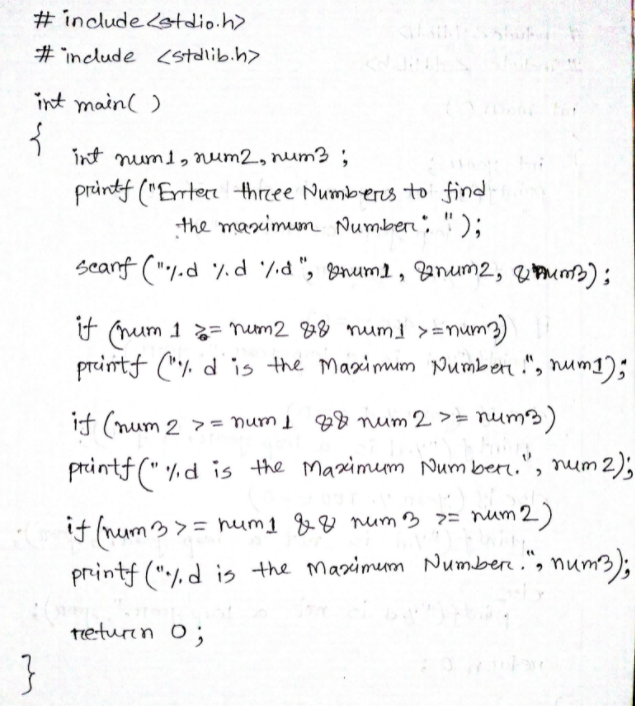 #include<stdio.h>
#include <stdlib.h>
int main( )
{
int num1, num2, num3 ;
printf ("Enter three Numbers to find
the maximum Number: ");
scanf ("%d %d %d", &num1, &num2, &num3);
if (num 1 >= num2 && num1 >=num3)
printf ("% d is the Maximum Number.", num1);
if (num 2 >= num 1 && num 2 >= num3)
printf (" %d is the Maximum Number.", num 2);
if (num 3 >= num1 && num 3 >= num2)
printf ("% d is the Maximum Number.", num3);
return 0;
}